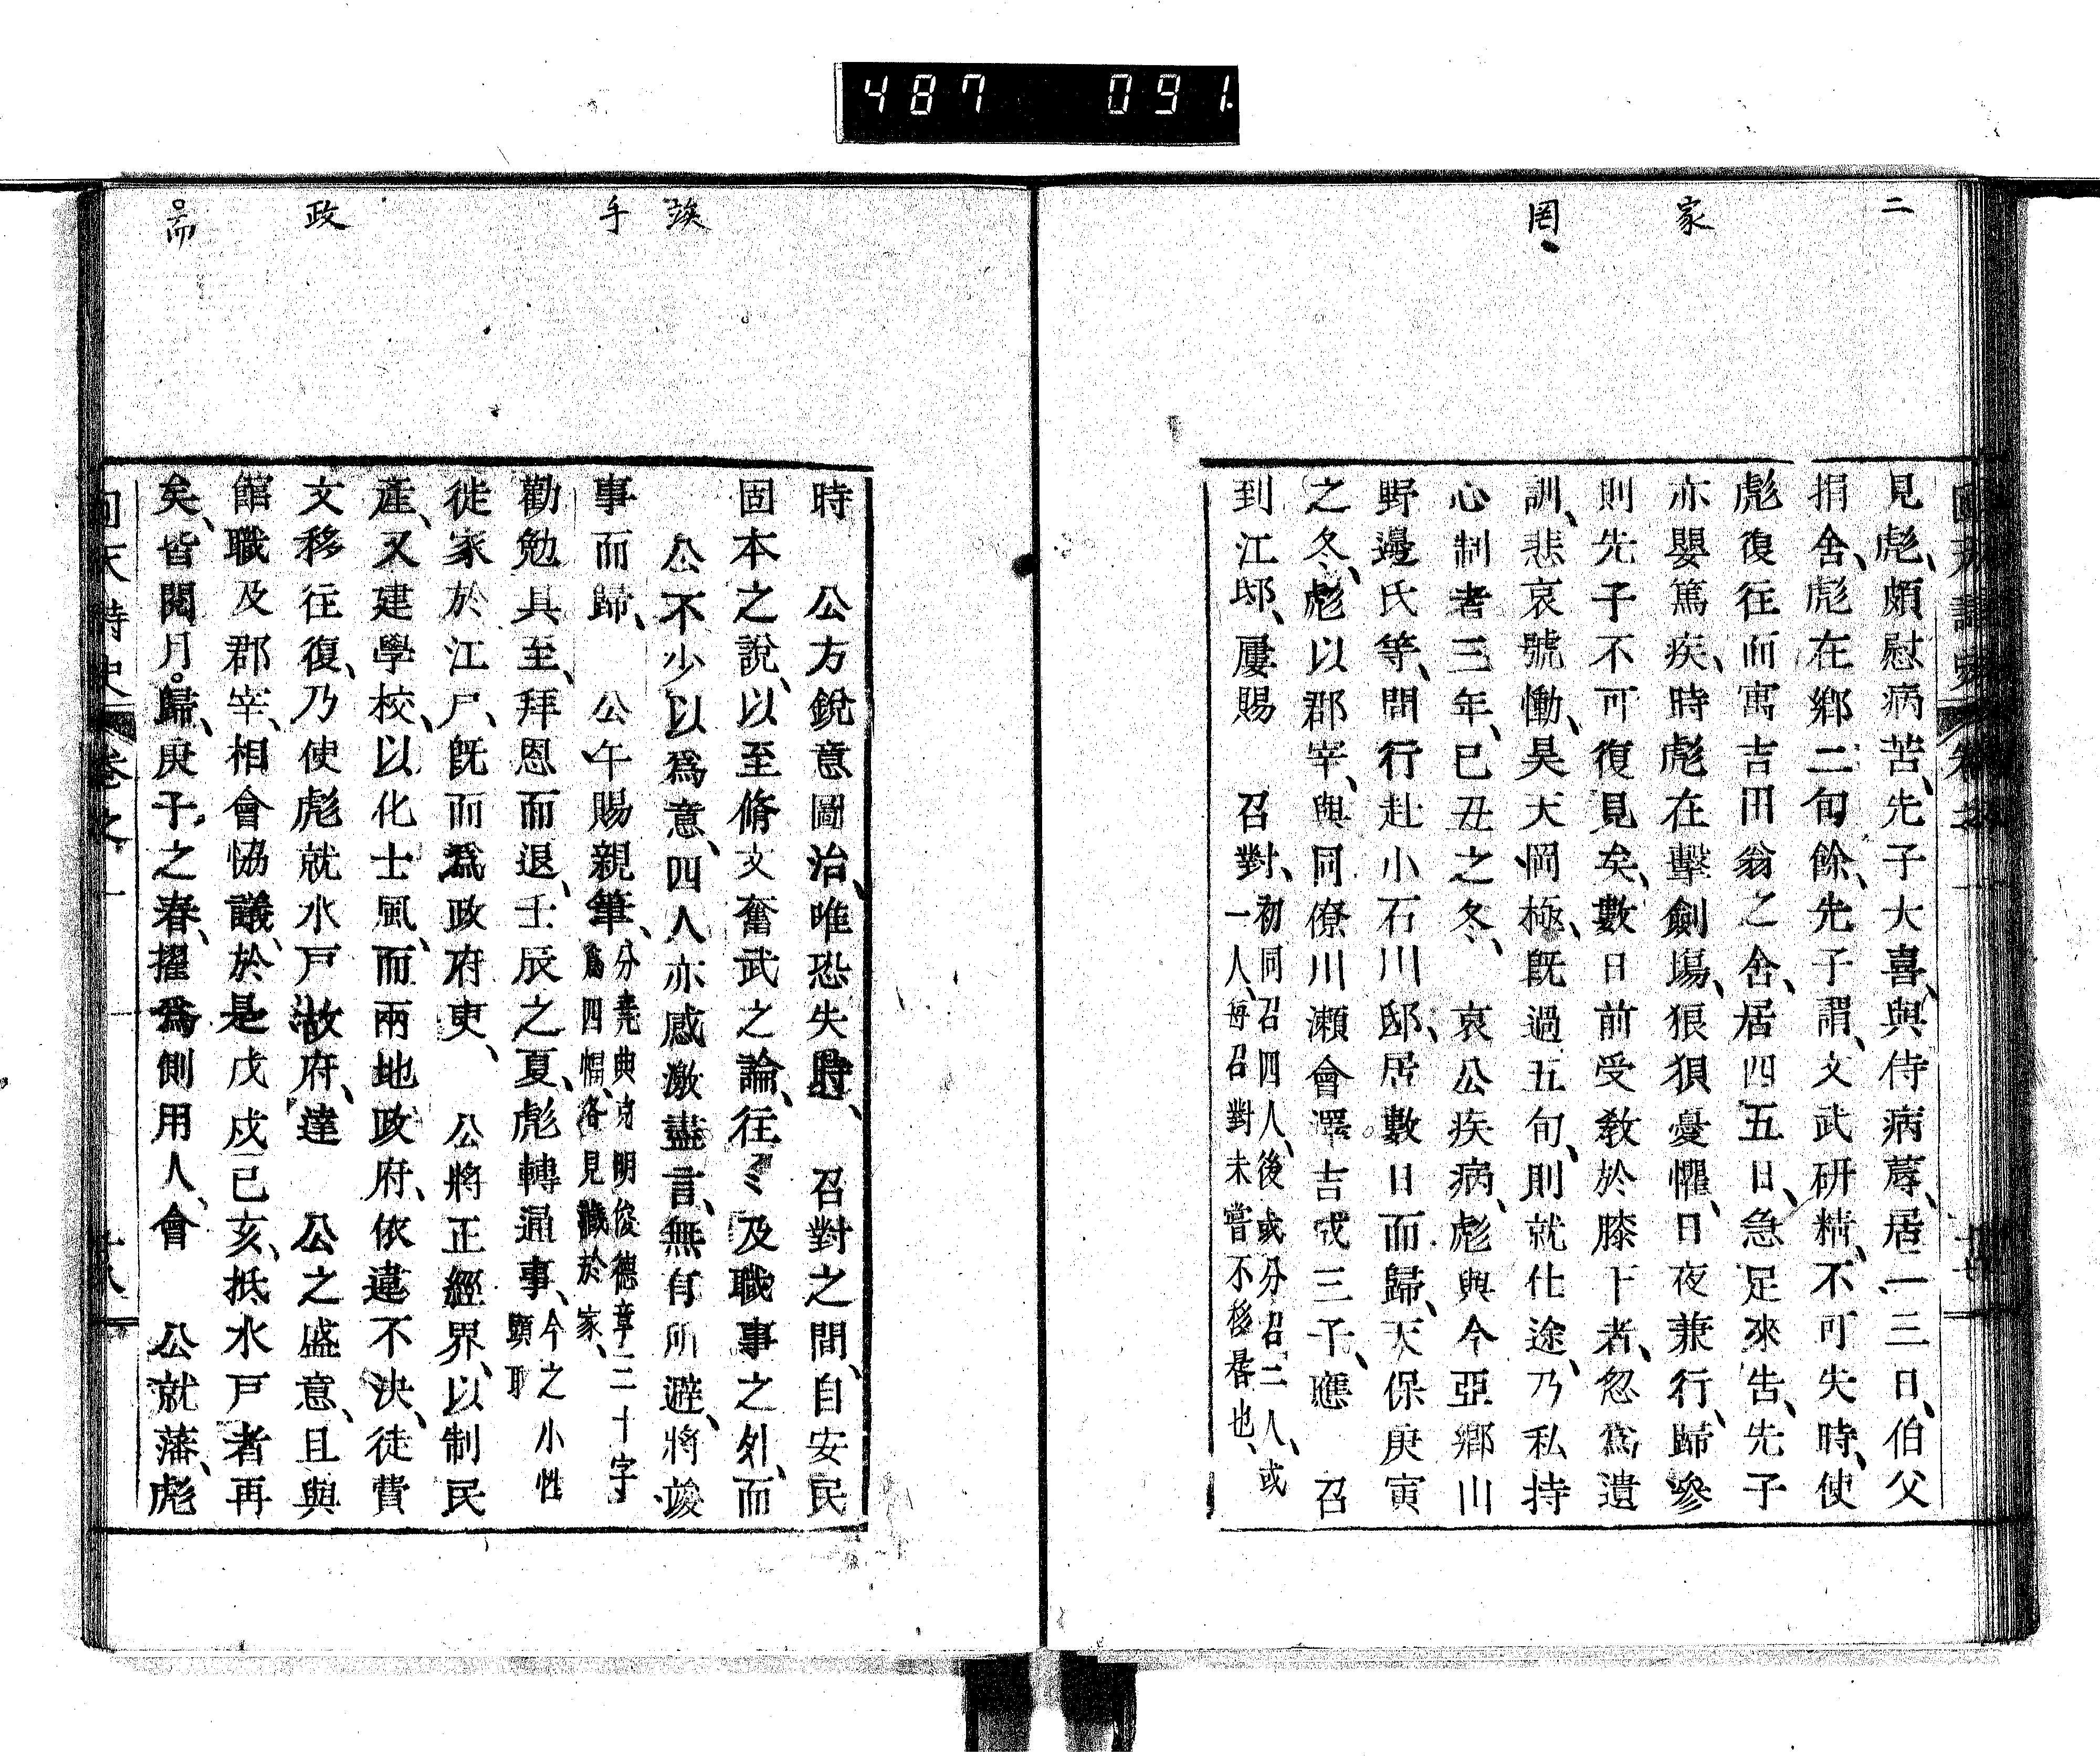 487 091
二
家
罔
見彪、頗慰病苦、先子大喜、與侍病蓐、居一三日、伯父
捐舍、彪在鄉二旬餘、先子謂、文武研精、不可失時、使
彪復往而寓吉田翁之舍、居四五日、急足來告、先子
亦嬰篤疾、時彪在擊劍塲、狼狽憂懼、日夜兼行、歸參
則先子不可復見矣、數日前受教於膝下者、忽爲遺
訓、悲哀號慟、昊天罔極、旣過五旬、則就仕途、乃私持
心制者三年、已丑之冬、 哀公疾病、彪與今亞鄉川
野邊氏等、間行赴小石川邸、居數日而歸、天保庚寅
之冬、彪以郡宰、與同僚川瀨會澤吉成三子、應 召
到江邸、屢賜 召對、初同召四人、後或分召二人、或
一人、每召對未嘗不移晷也、
回天詩史 卷之上
俟
手
政
時 公方銳意圖治、唯恐失時、 召對之間、自安民
固本之說、以至脩文奮武之論、往々及職事之外、而
公不少以爲意、四人亦感激盡言、無有所避、將竣
事而歸、 公午賜親筆、分堯典克明俊德章二十字
爲四幅、各見藏於家、
勸勉具至、拜恩而退、壬辰之夏、彪轉通事、今之小性
頭取
徙家於江戶、旣而爲政府吏、 公將正經界、以制民
產、又建學校、以化士風、而兩地政府、依違不決、徒費
文移往復、乃使彪就水戶政府、達 公之盛意、且與
館職及郡宰、相會恊議、於是戊戌己亥、抵水戶者再
矣、皆閱月。歸、庚子之春、擢爲側用人、會 公就藩、彪
回天詩史 卷之上 十八